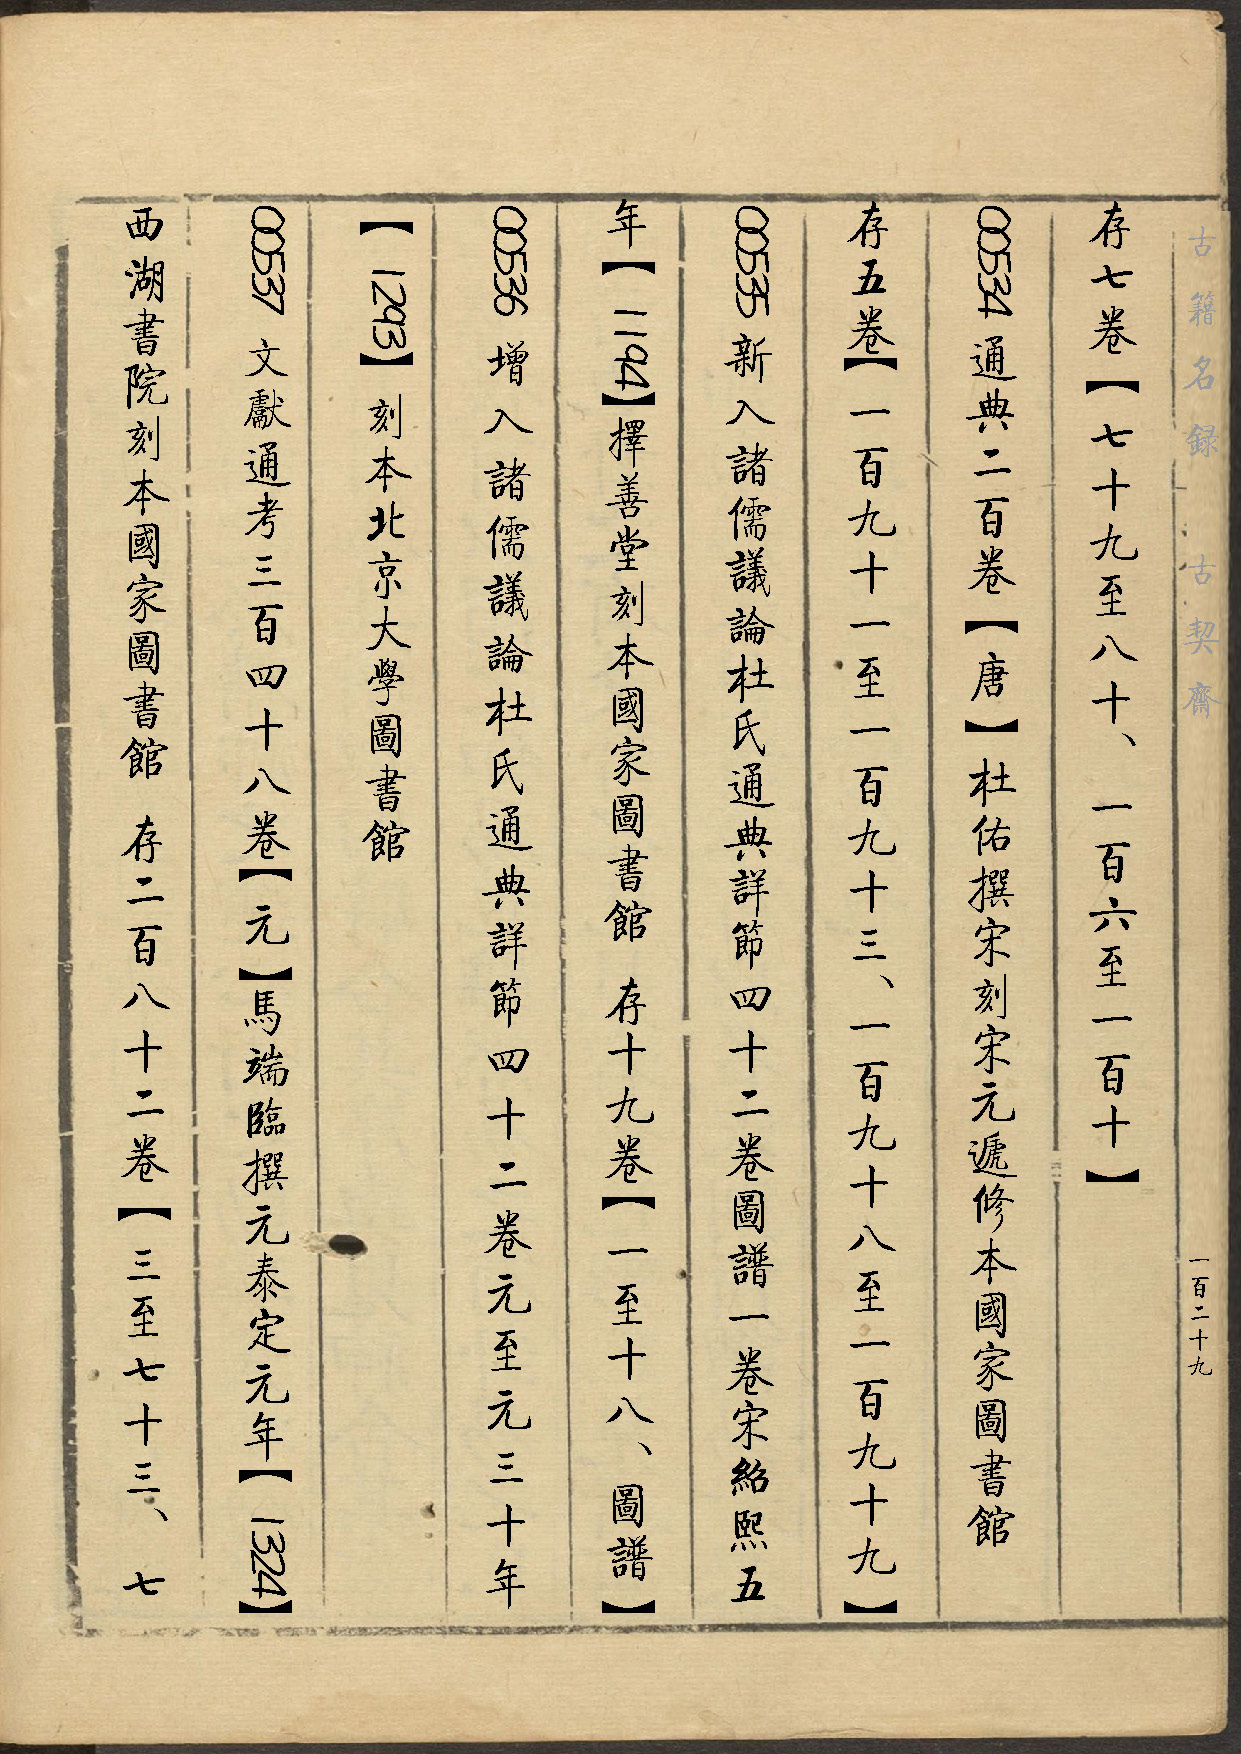 古籍名録 古契齋 一百二十九
存七卷【七十九至八十、一百六至一百十】
00534 通典二百卷【唐】杜佑撰宋刻宋元遞修本國家圖書館
存五卷【一百九十一至一百九十三、一百九十八至一百九十九】
00535 新入諸儒議論杜氏通典詳節四十二卷圖譜一卷宋紹熙五
年【1194】擇善堂刻本國家圖書館 存十九卷【一至十八、圖譜】
00536 增入諸儒議論杜氏通典詳節四十二卷元至元三十年
【1293】刻本北京大學圖書館
00537 文獻通考三百四十八卷【元】馬端臨撰元泰定元年【1324】
西湖書院刻本國家圖書館 存二百八十二卷【三至七十三、七